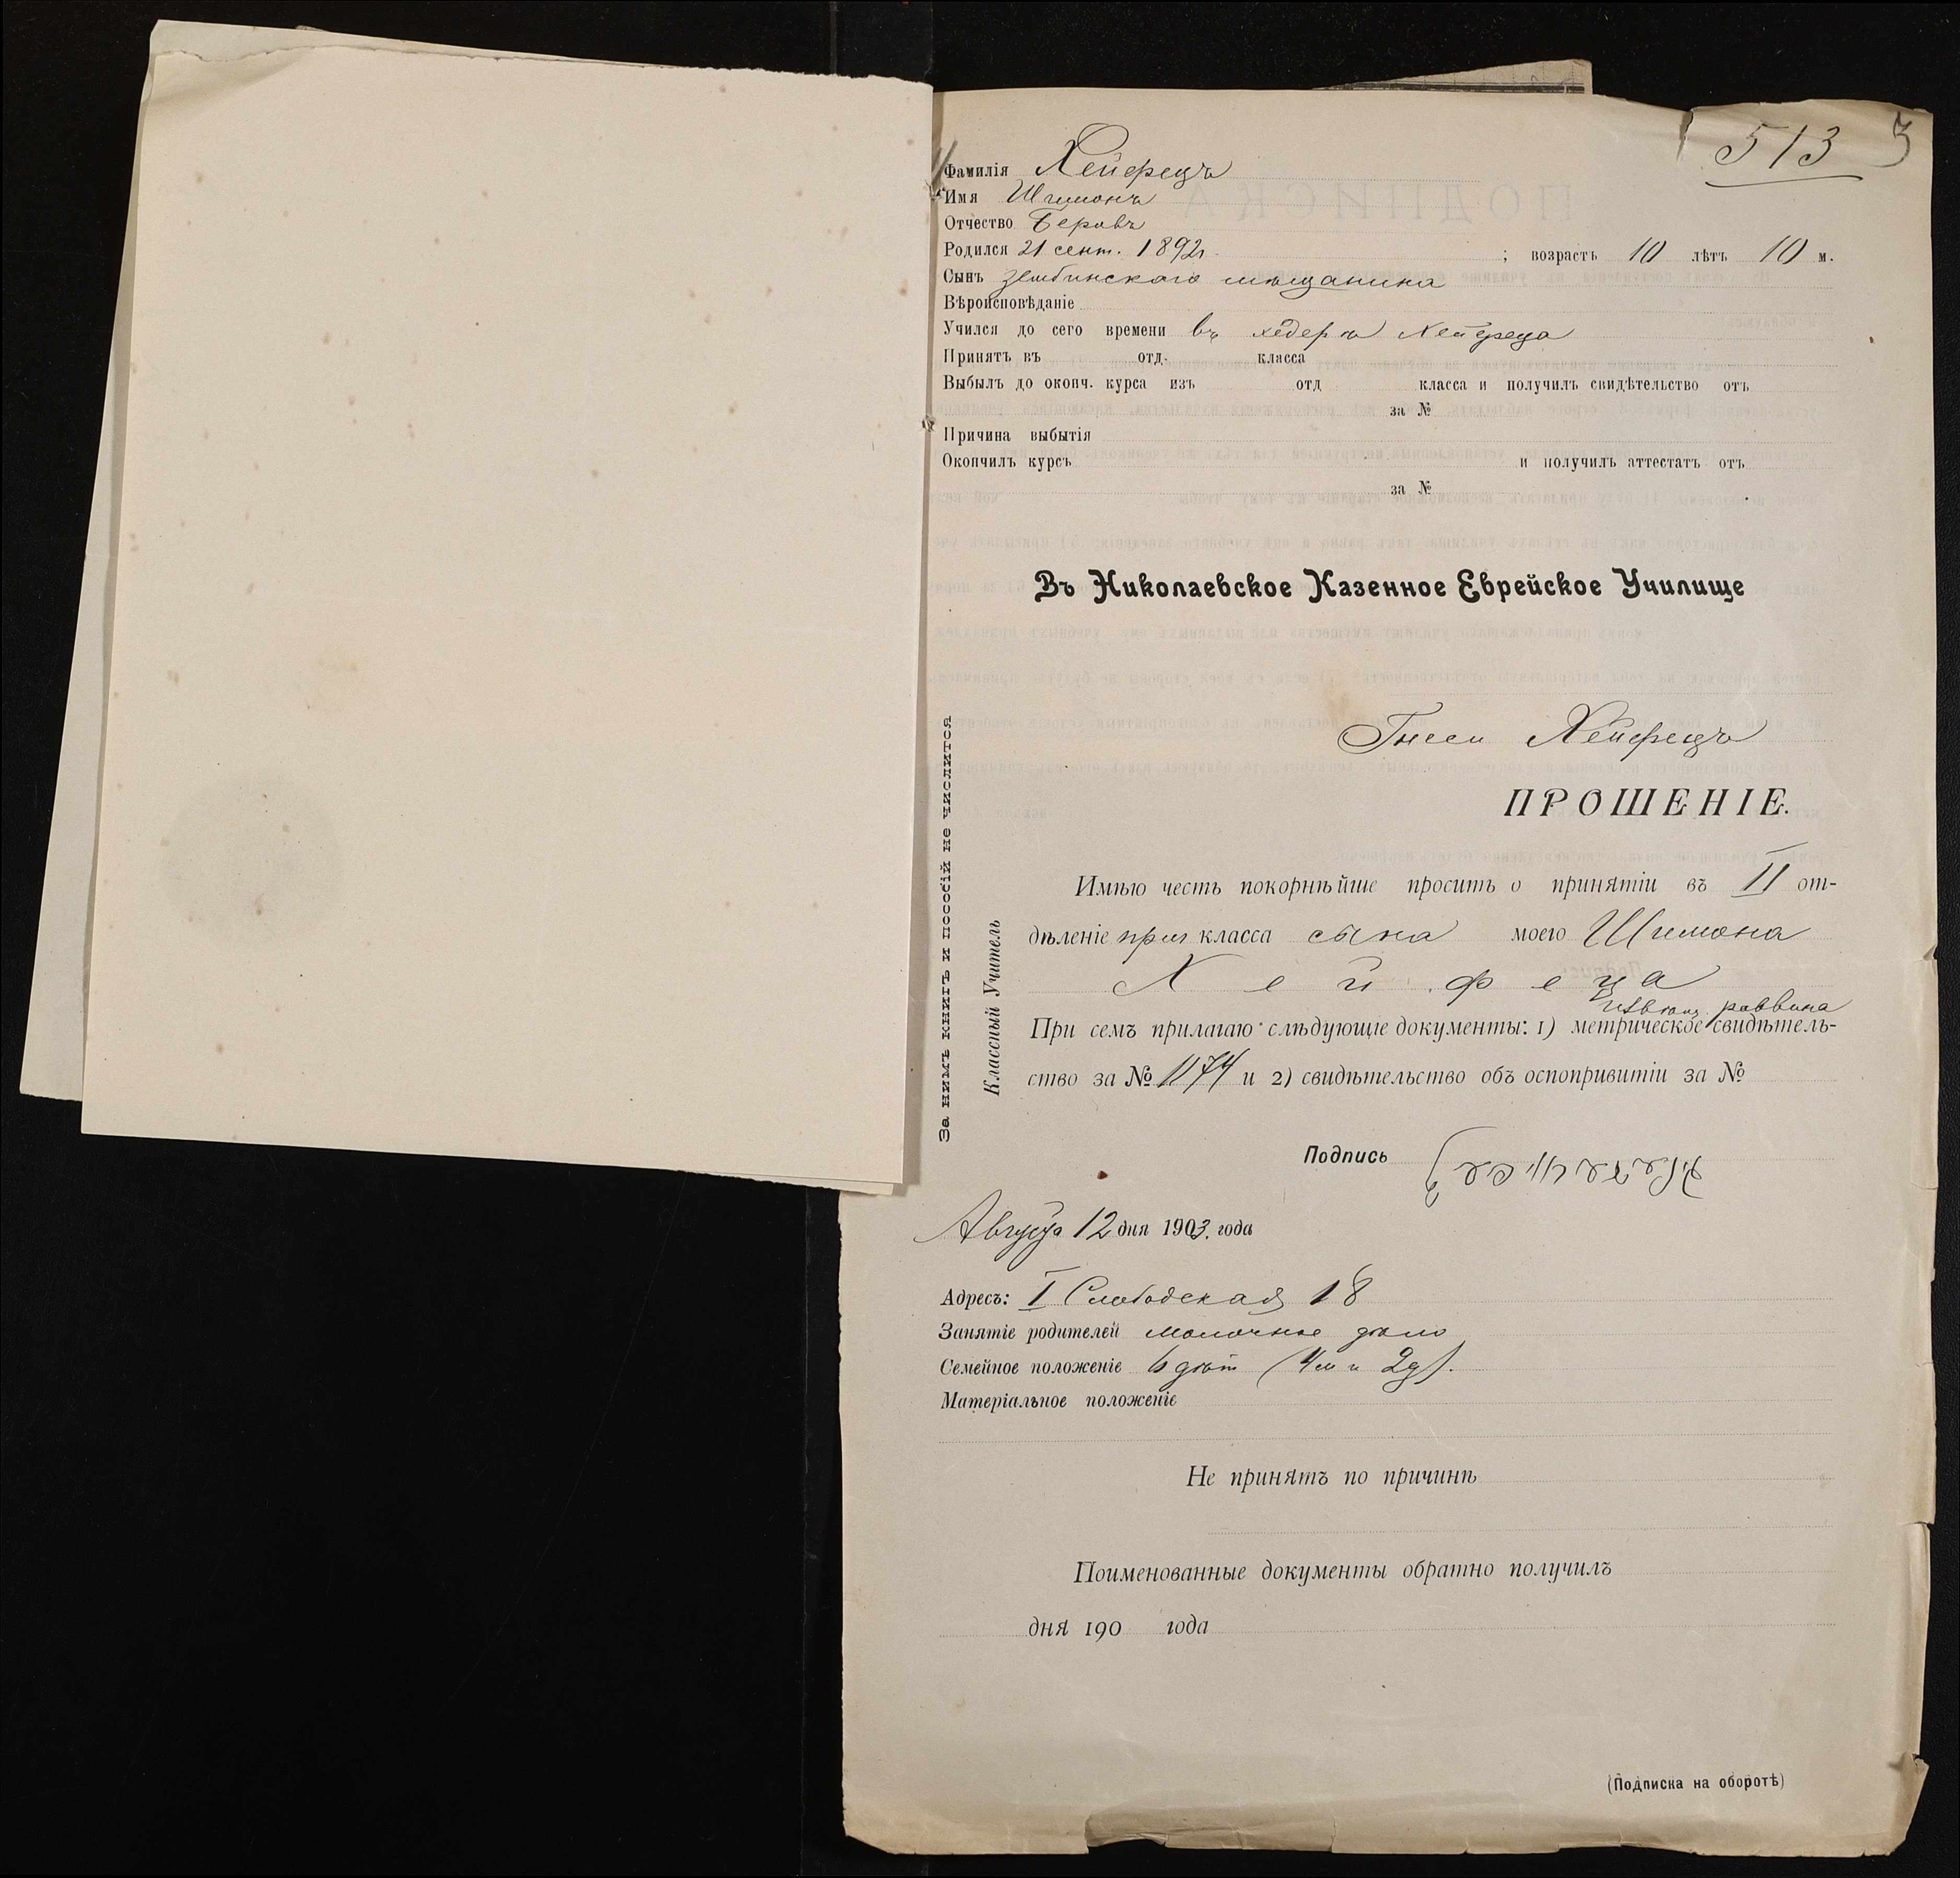 513 3
Фамилія Хейфецъ
Имя Шимонъ
Отчество Беровъ
Родился 21 сент. 1892 г. ; возрастъ 10 лѣтъ 10 м.
Сынъ зембинскаго мѣщанина
Вѣроисповѣданіе
Учился до сего времени въ хедерѣ Хейфеца
Принятъ въ отд. класса
Выбылъ до оконч. курса изъ отд класса и получилъ свидѣтельство отъ
за №
Причина выбытія
Окончилъ курсъ и получилъ аттестатъ отъ
за №
Въ Николаевское Казенное Еврейское Училище
Гнеси Хейфецъ
ПРОШЕНІЕ.
Имѣю честь покорнѣйше просить о принятіи въ II от-
дѣленіе приг класса сына моего Шимона
Хейфеца
раввина
При семъ прилагаю слѣдующіе документы: 1) метрическое свидѣтель-
ство за № 1174 и 2) свидѣтельство объ оспопривитіи за №
Подпись
Августа 12 дня 1903. года
Адресъ: I Слободская 18
Занятіе родителей молочное дѣло
Семейное положеніе 6 дѣт (4 м и 2 д).
Матеріальное положеніе
Не принятъ по причинѣ
Поименованные документы обратно получилъ
дня 190 года
(Подписка на оборотѣ)
За нимъ книгъ и пособій не числится
Классный Учитель